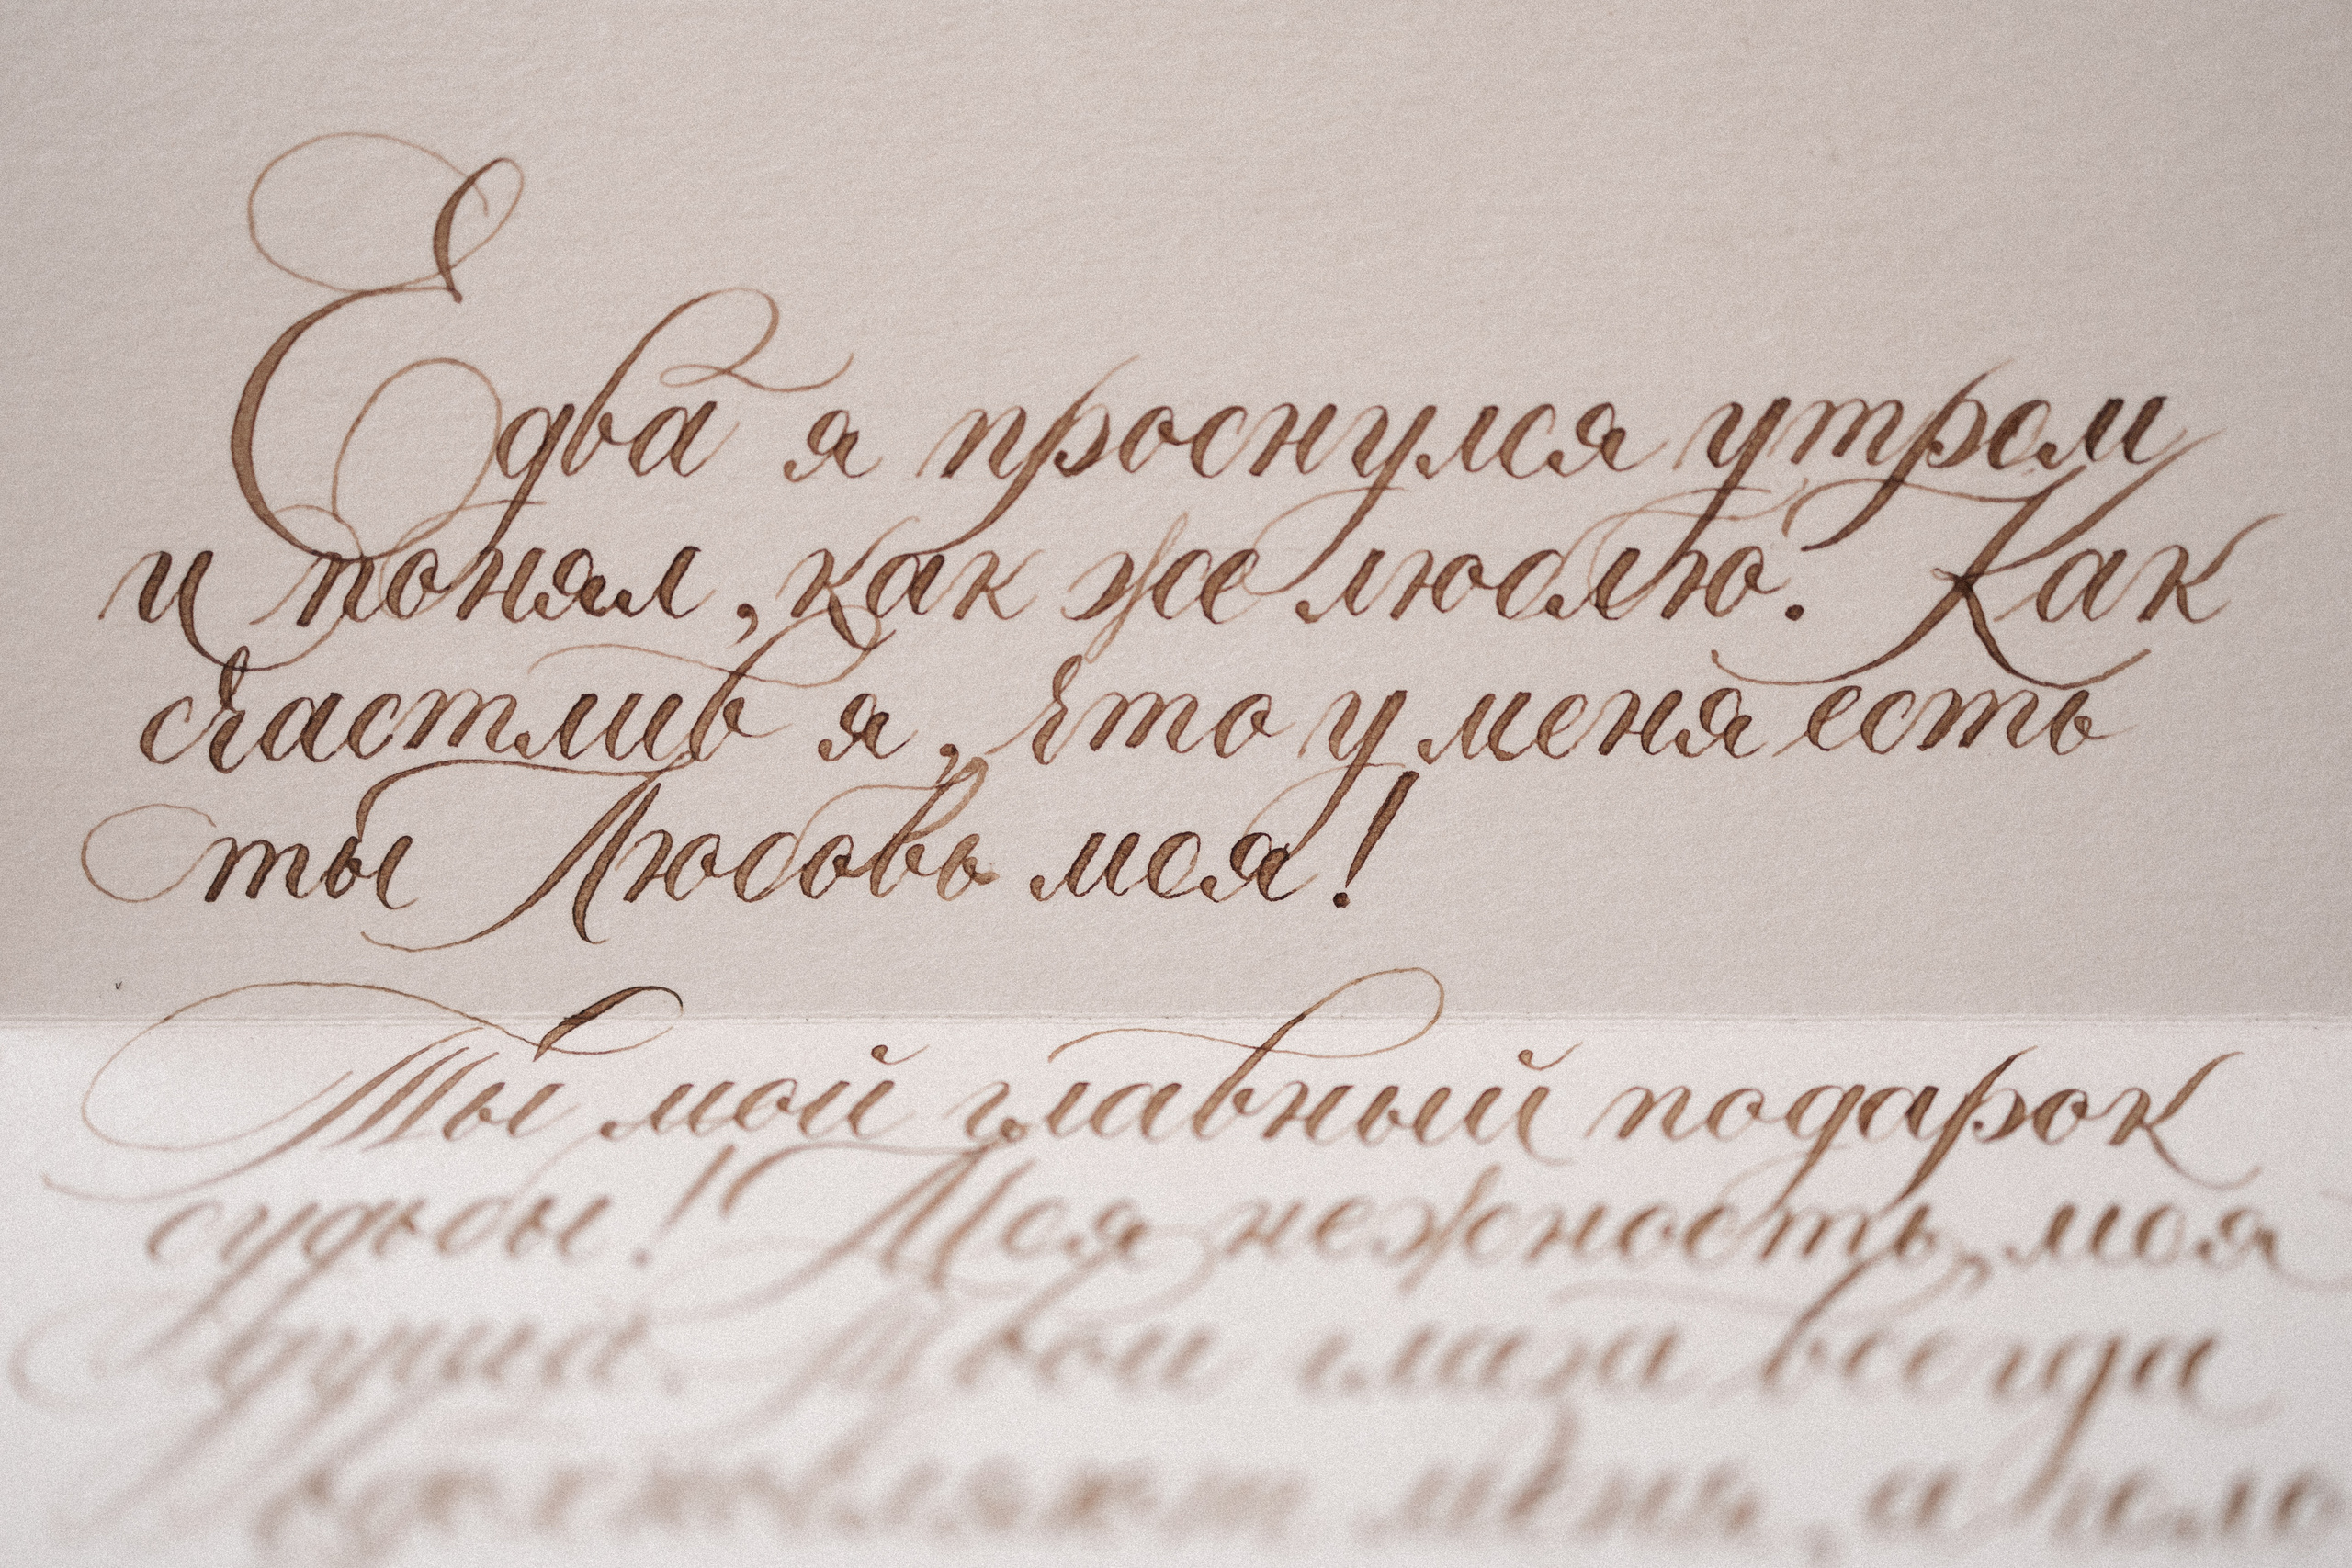 Едва я проснулся утром
и понял, как же люблю. Как
счастлив я, что у меня есть
ты Любовь моя!
Ты мой главный подарок
судьбы! Моя нежность, моя
душа. Твои глаза всегда
меня, а